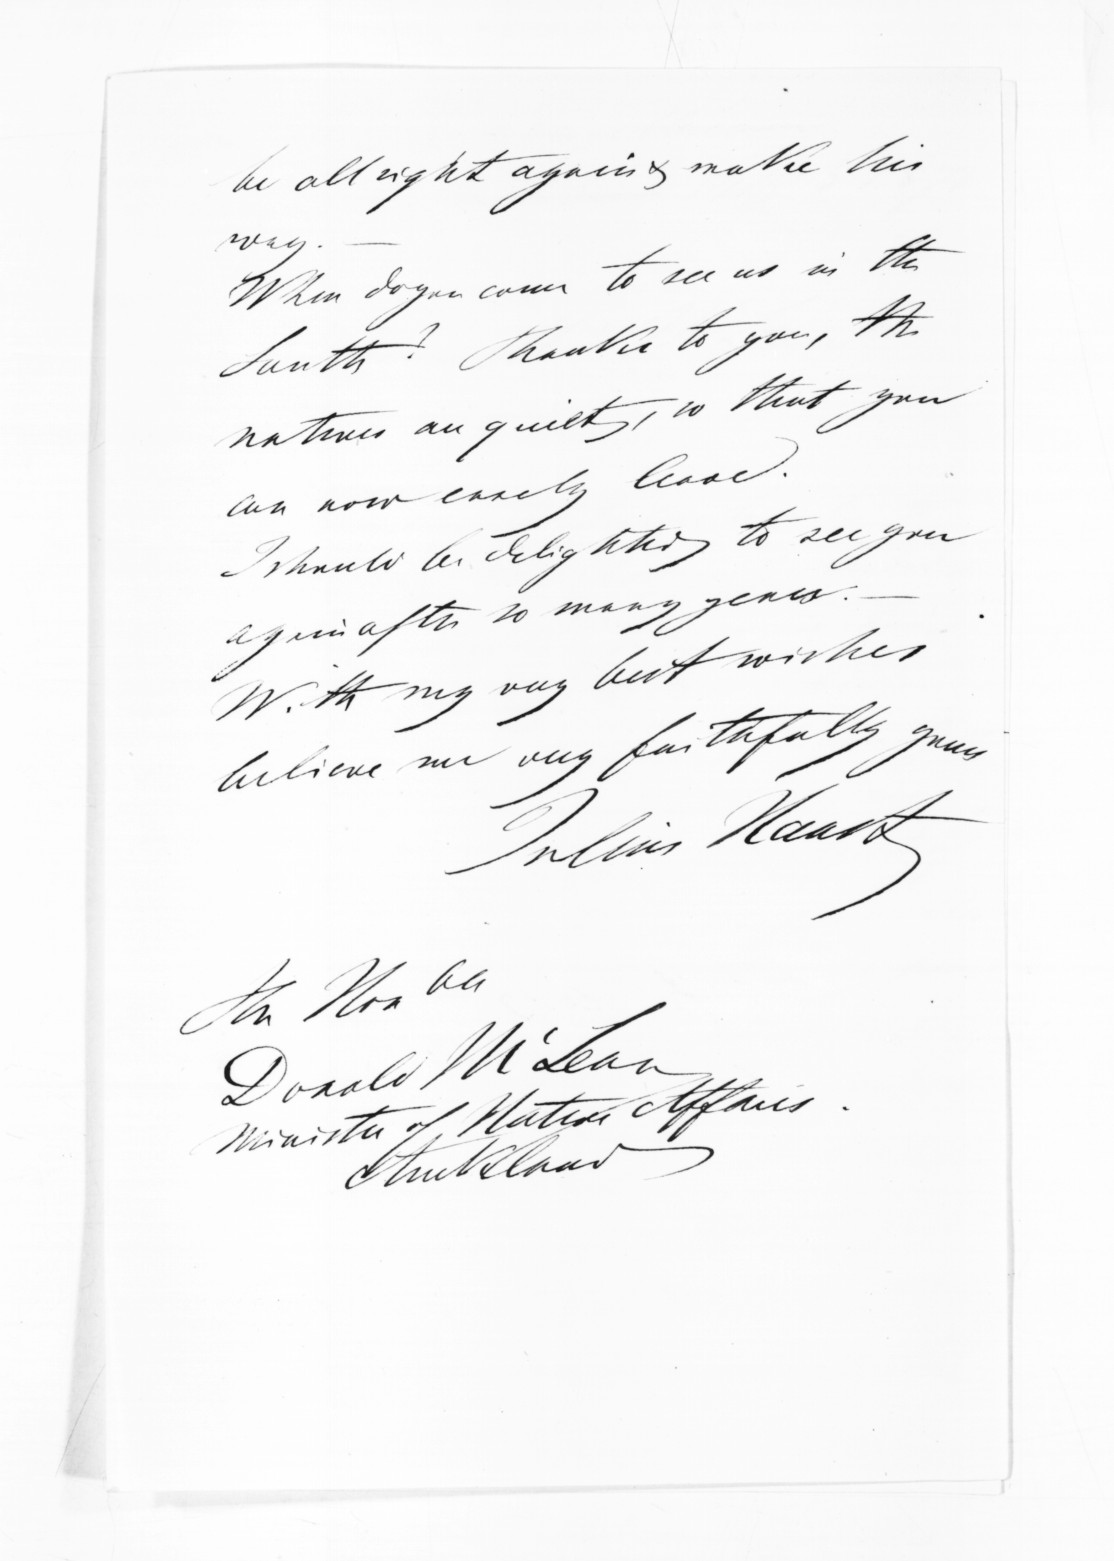 be all right again & make his
way. —
When do you come to see us in the
South? Thanks to you, the
natives are quiet, so that you
can now easely leave.
I should be delighted to see you
again after so many years. —
With my very best wishes
believe me very faithfully yours
Julius Haast
The Honble
Donald McLean
Minister of Native Affairs.
Auckland